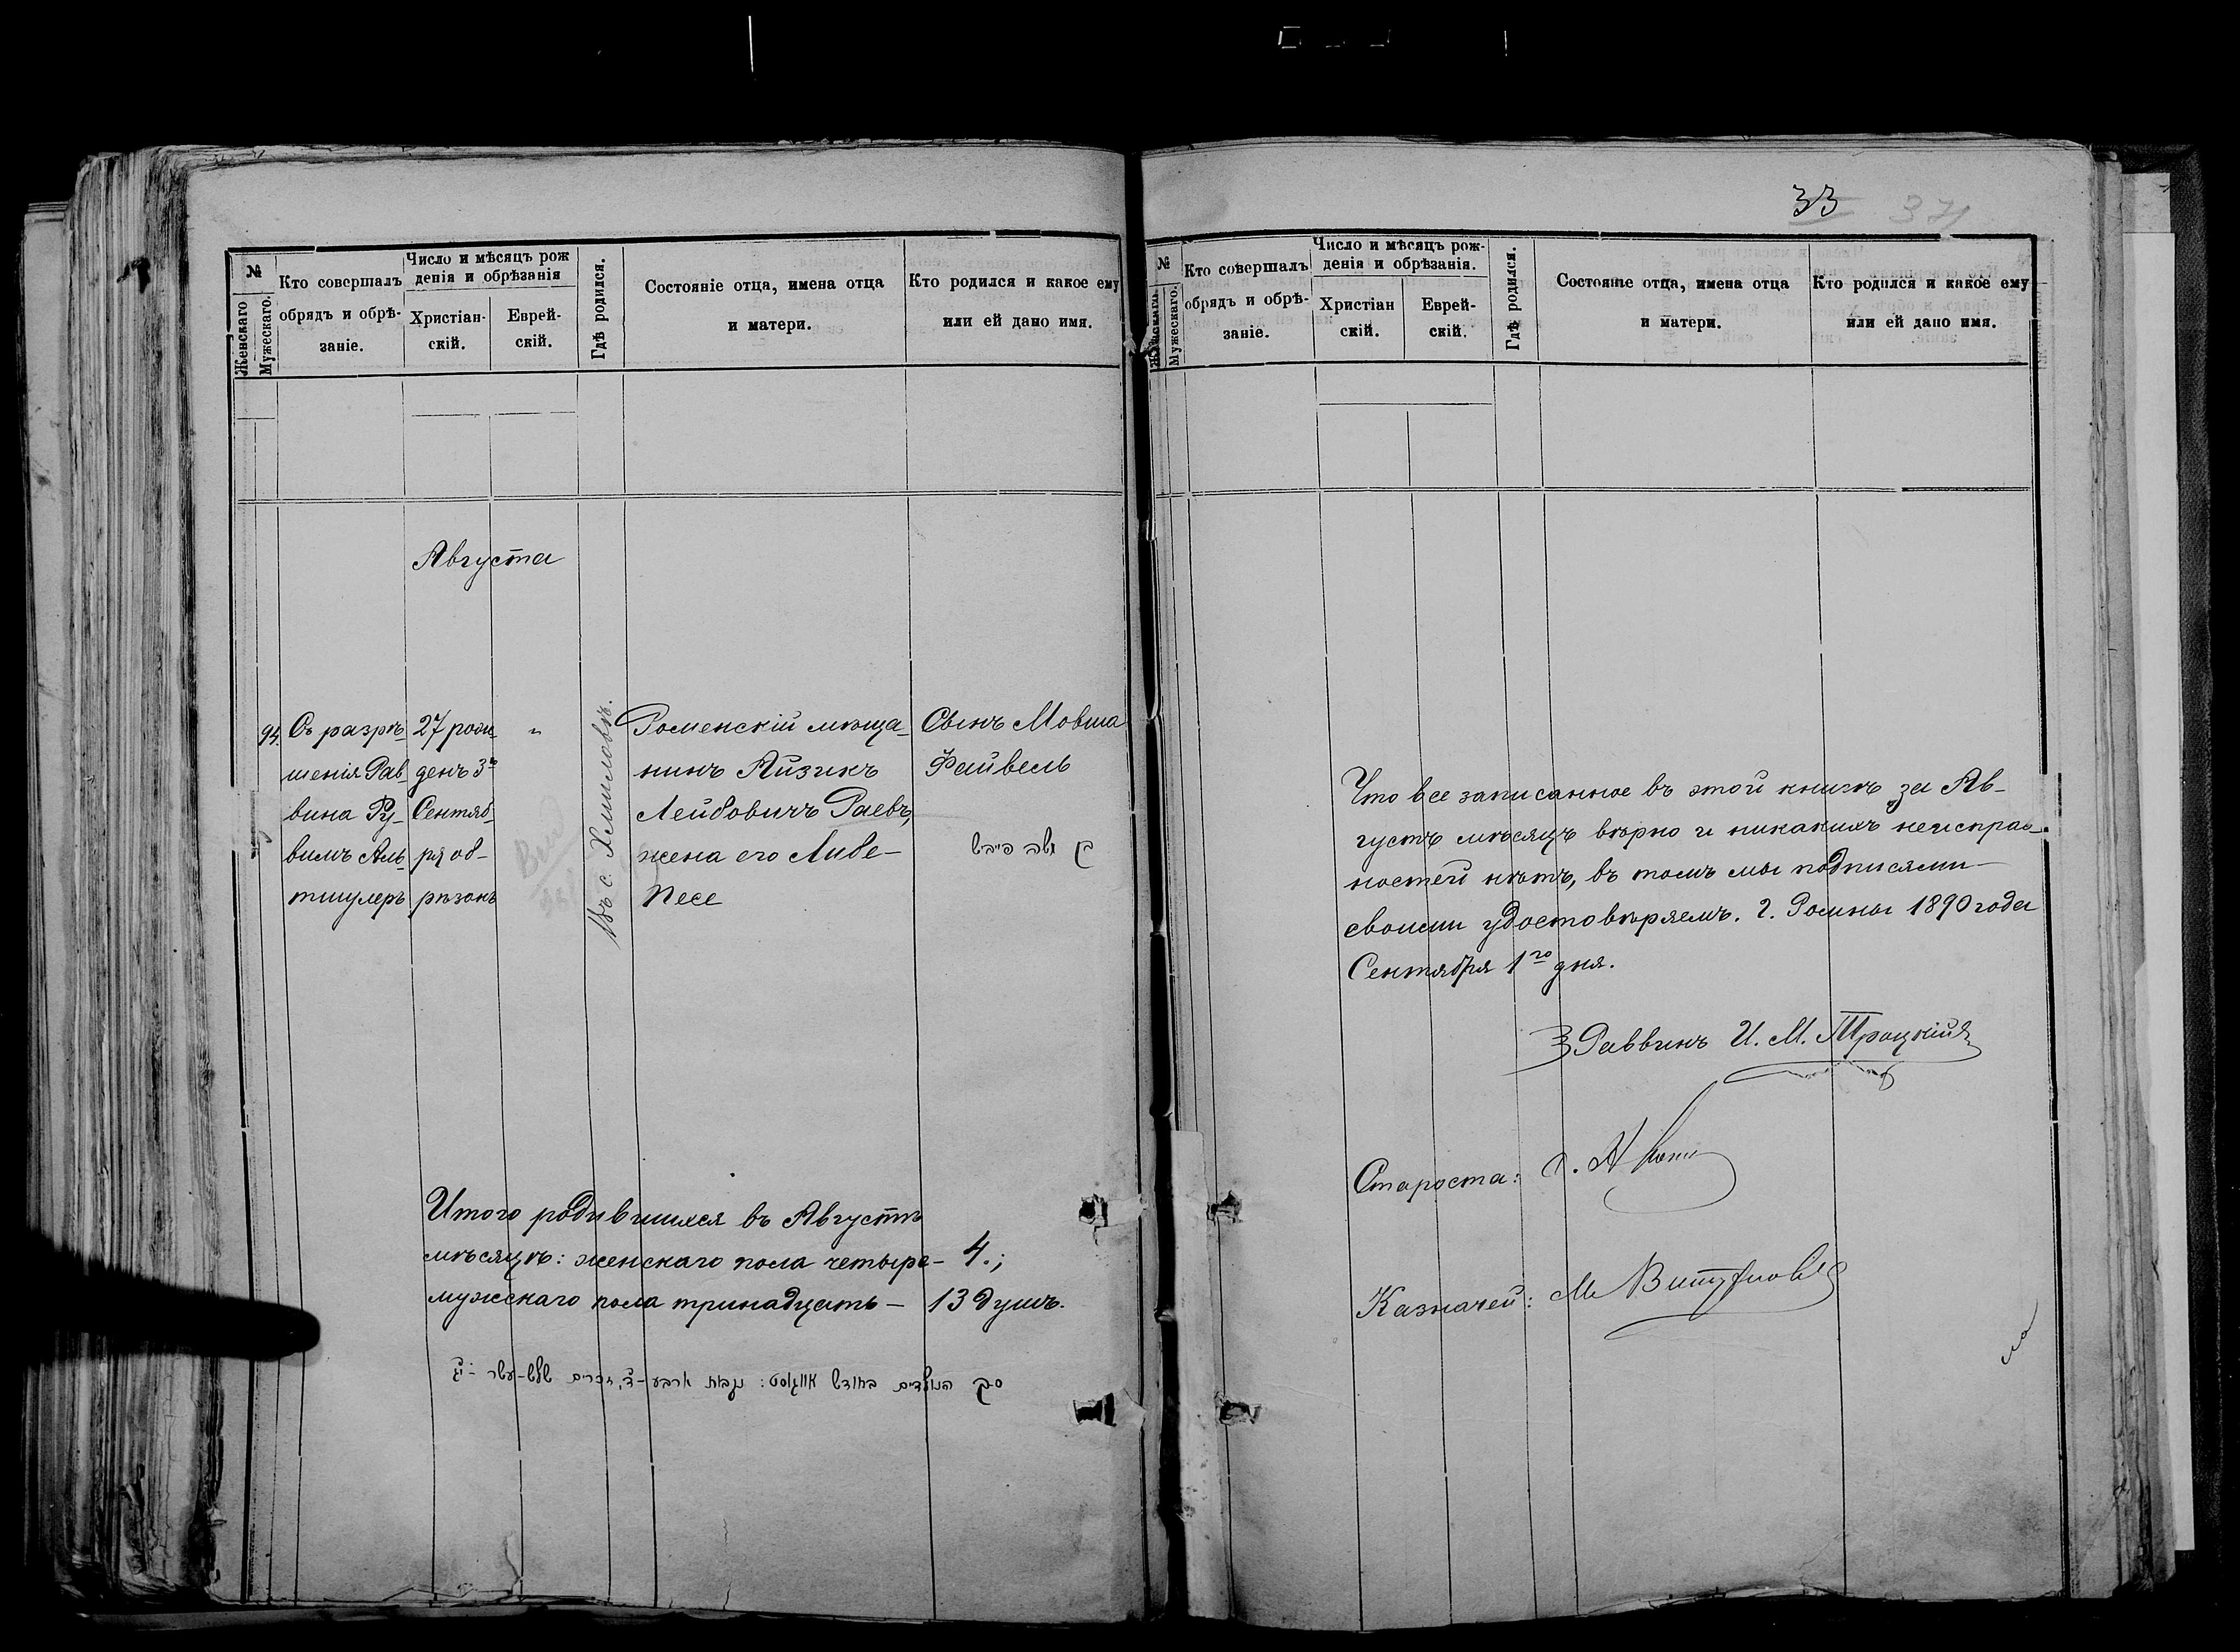 №
Женскаго
Мужескаго.
Кто совершалъ
обрядъ и обрѣ-
заніе.
Число и мѣсяцъ рож
денія и обрѣзанія
Христіан-
скій.
Еврей-
скій.
Гдѣ родился.
Состояніе отца, имена отца
и матери.
Кто родился и какое ему
или ей дано имя.
Августа
94.
Съ разрѣ-
шенія Рав-
вина Ру-
вимъ Аль-
тшулеръ
27 рож-
денъ 3го
Сентяб-
ря об-
рѣзанъ
"
Въ с. Хмиловкѣ.
Роменскій мѣща-
нинъ Айзикъ
Лейбовичъ Раевъ,
жена его Либе-
Песе
Сынъ Мовша
Файвель
בן משה פייבש
Итого родившихся въ Августѣ
мѣсяцѣ: женскаго пола четыре- 4.;
мужескаго пола тринадцать - 13 душъ.
הנולדים בחודש אווגוסט: נקבות ארבע-ד', זכרים שלש-עשר - יג
33
371
№
Женскаго.
Мужескаго.
Кто совершалъ
обрядъ и обрѣ-
заніе.
Число и мѣсяцъ рож-
денія и обрѣзанія.
Христіан
скій.
Еврей-
скій.
Гдѣ родился.
Состояніе отца, имена отца
и матери.
Кто родился и какое ему
или ей дано имя.
Что все записанное въ этой книгѣ за Ав-
густъ мѣсяцъ вѣрно и никакихъ неисправ-
ностей нѣтъ, въ томъ мы подписями
своими удостовѣряемъ. Г. Ромны 1890 года
Сентября 1го дня.
Раввинъ И. М. Троцкій
Староста:
Казначей: М